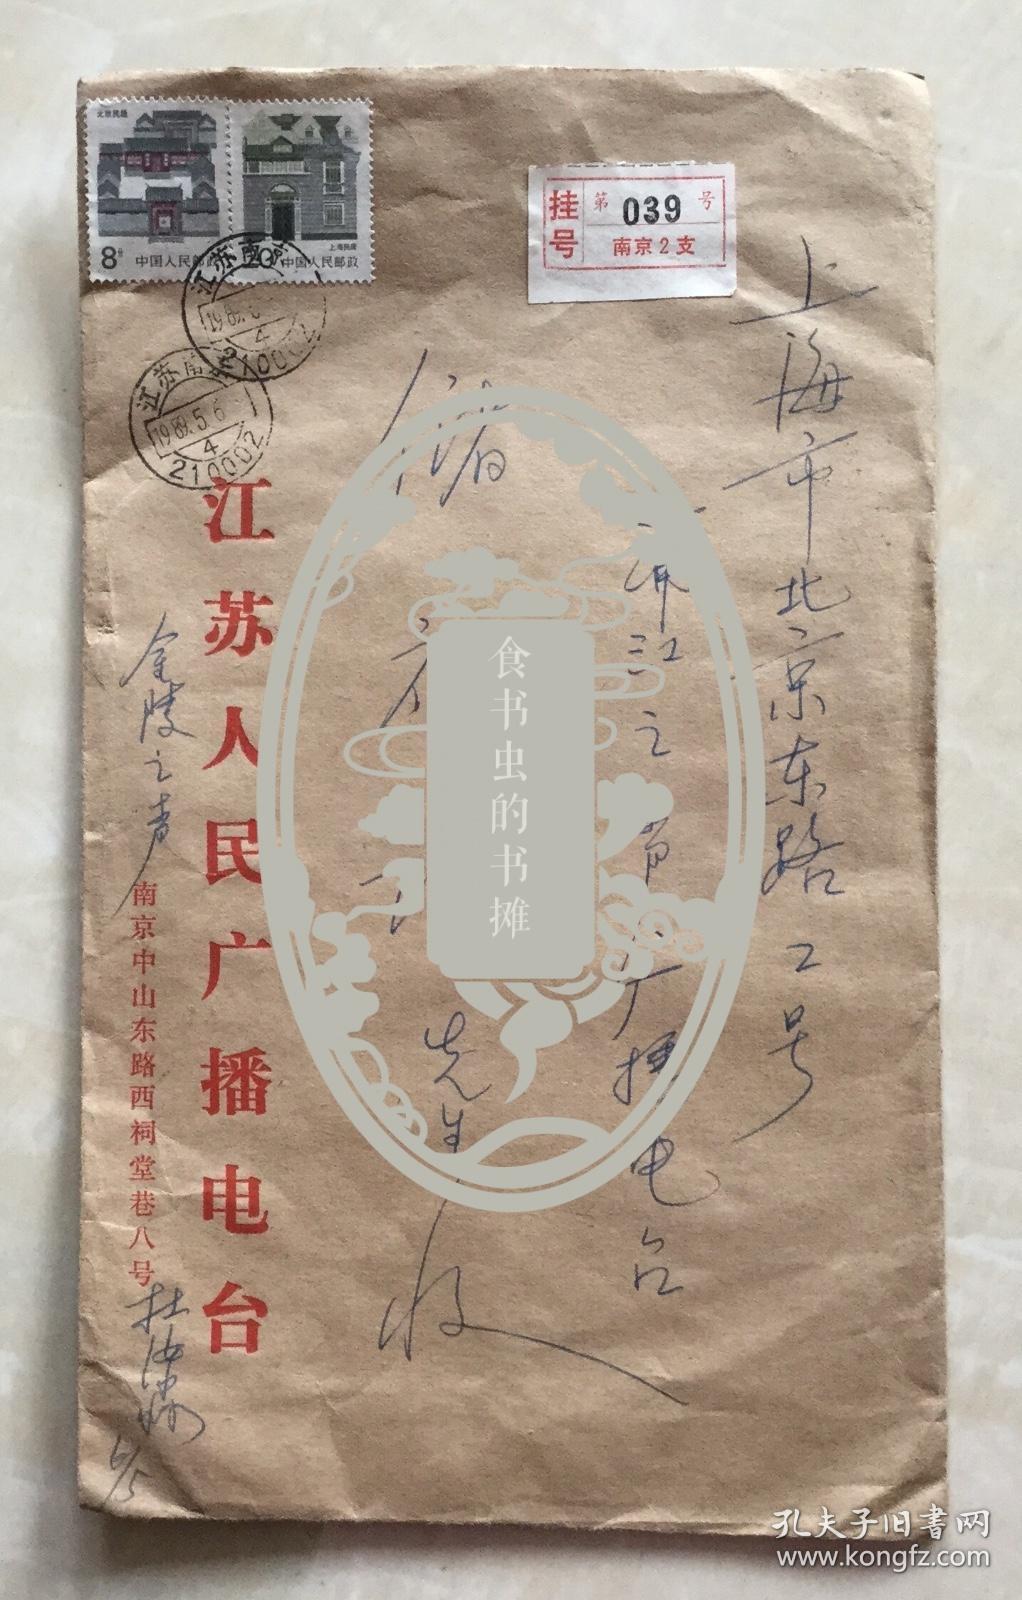 北京民居
8分
中国人民邮政
上海民居
20分
中国人民邮政
挂号
第 039 号
南京2支
江苏南京
1989.
4
210002
江苏南京
1989.5.6
4
210002
上海市北京东路2号
浦江之声广播电台
先生 收
江苏人民广播电台
金陵之声
南京中山东路西祠堂巷八号
杜
6/5
食书虫的书摊
孔夫子旧书网
www.kongfz.com